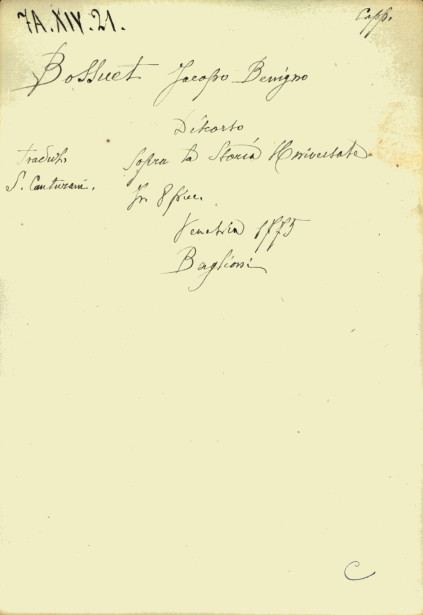 7A.XIV.21.
Capp.
Bossuet Jacopo Benigno
Discorso
Traduz.
Sopra la Storia Universale
S. Canturani.
In 8 picc.
Venezia 1775
Baglioni
C